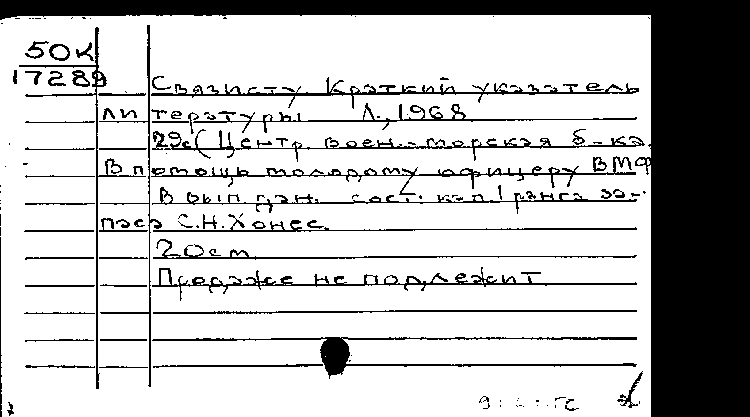 50К
17289
Связисту Краткий указатель
литературы Л., 1968
29с (Центр. воен.-морская б-ка.
В помощь молодому офицеру ВМФ
В вып. дан. сост: кап. 1 ранга за-
паса С.Н.Хонес.
20см
Продаже не подлежит